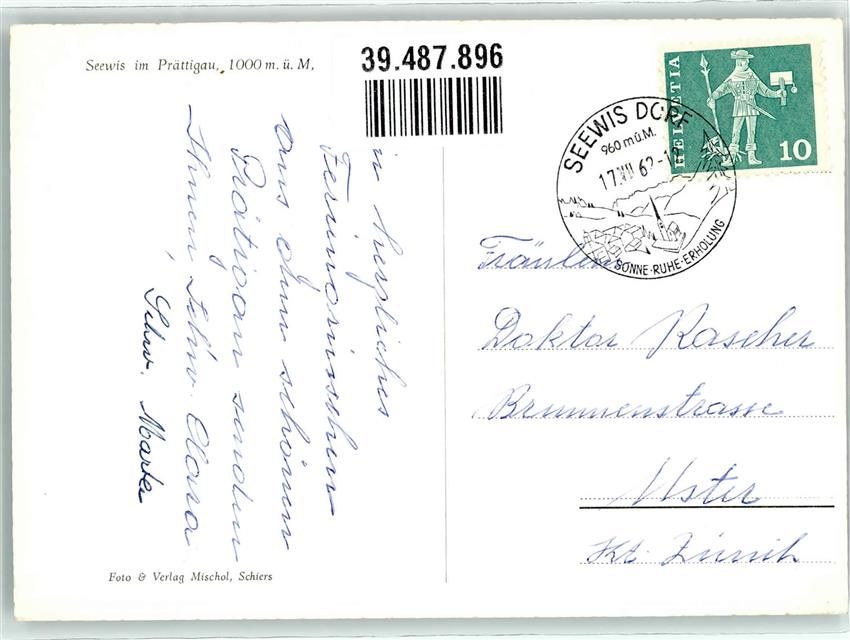 Seewis im Prättigau, 1000 m. ü. M,
39.487.896
HELVETIA
10
SEEWIS DORF
960 m ü. M.
17.VII 62-1
SONNE·RUHE·ERHOLUNG
herzliches
Ferienerinnerung
aus dem schönen
Prätigau senden
Ihnen Schw. Clara
, Schw. Marta
Fräulein
Doktor Rascher
Brunnenstrasse
Uster
Kt. Zürich
Foto & Verlag Mischol, Schiers